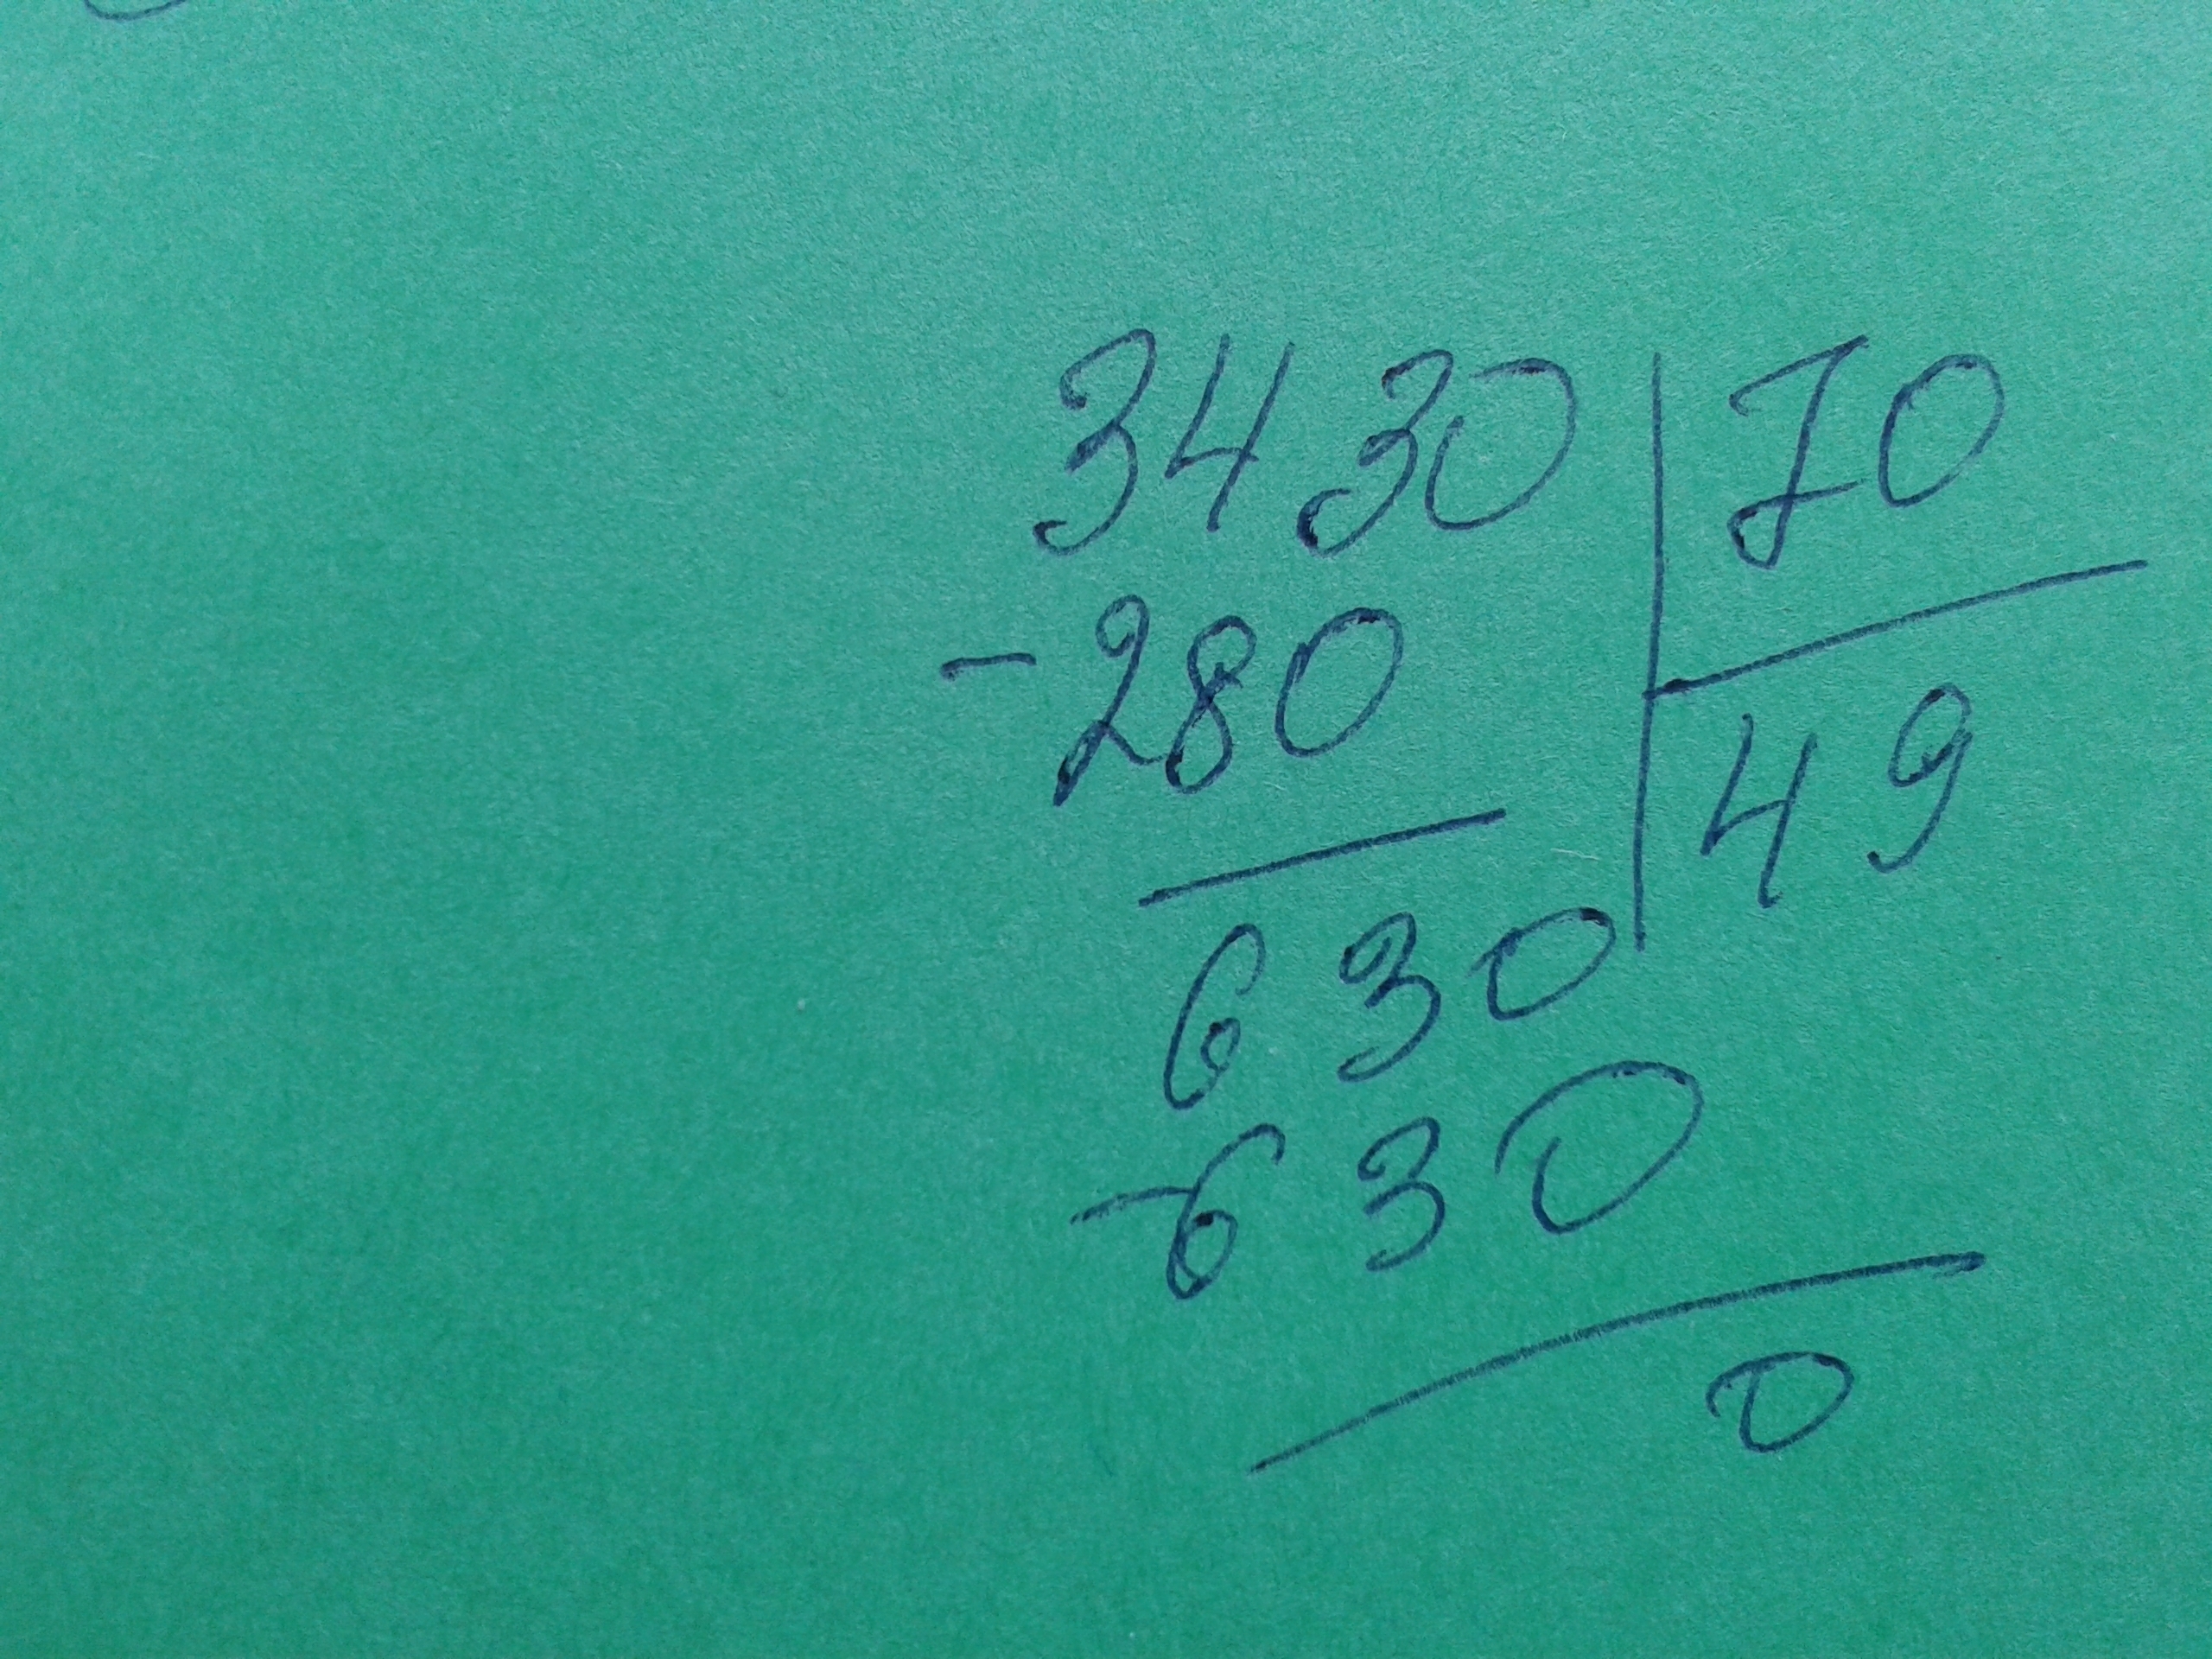 3430 | 70
-280 | 49
630
-630
0